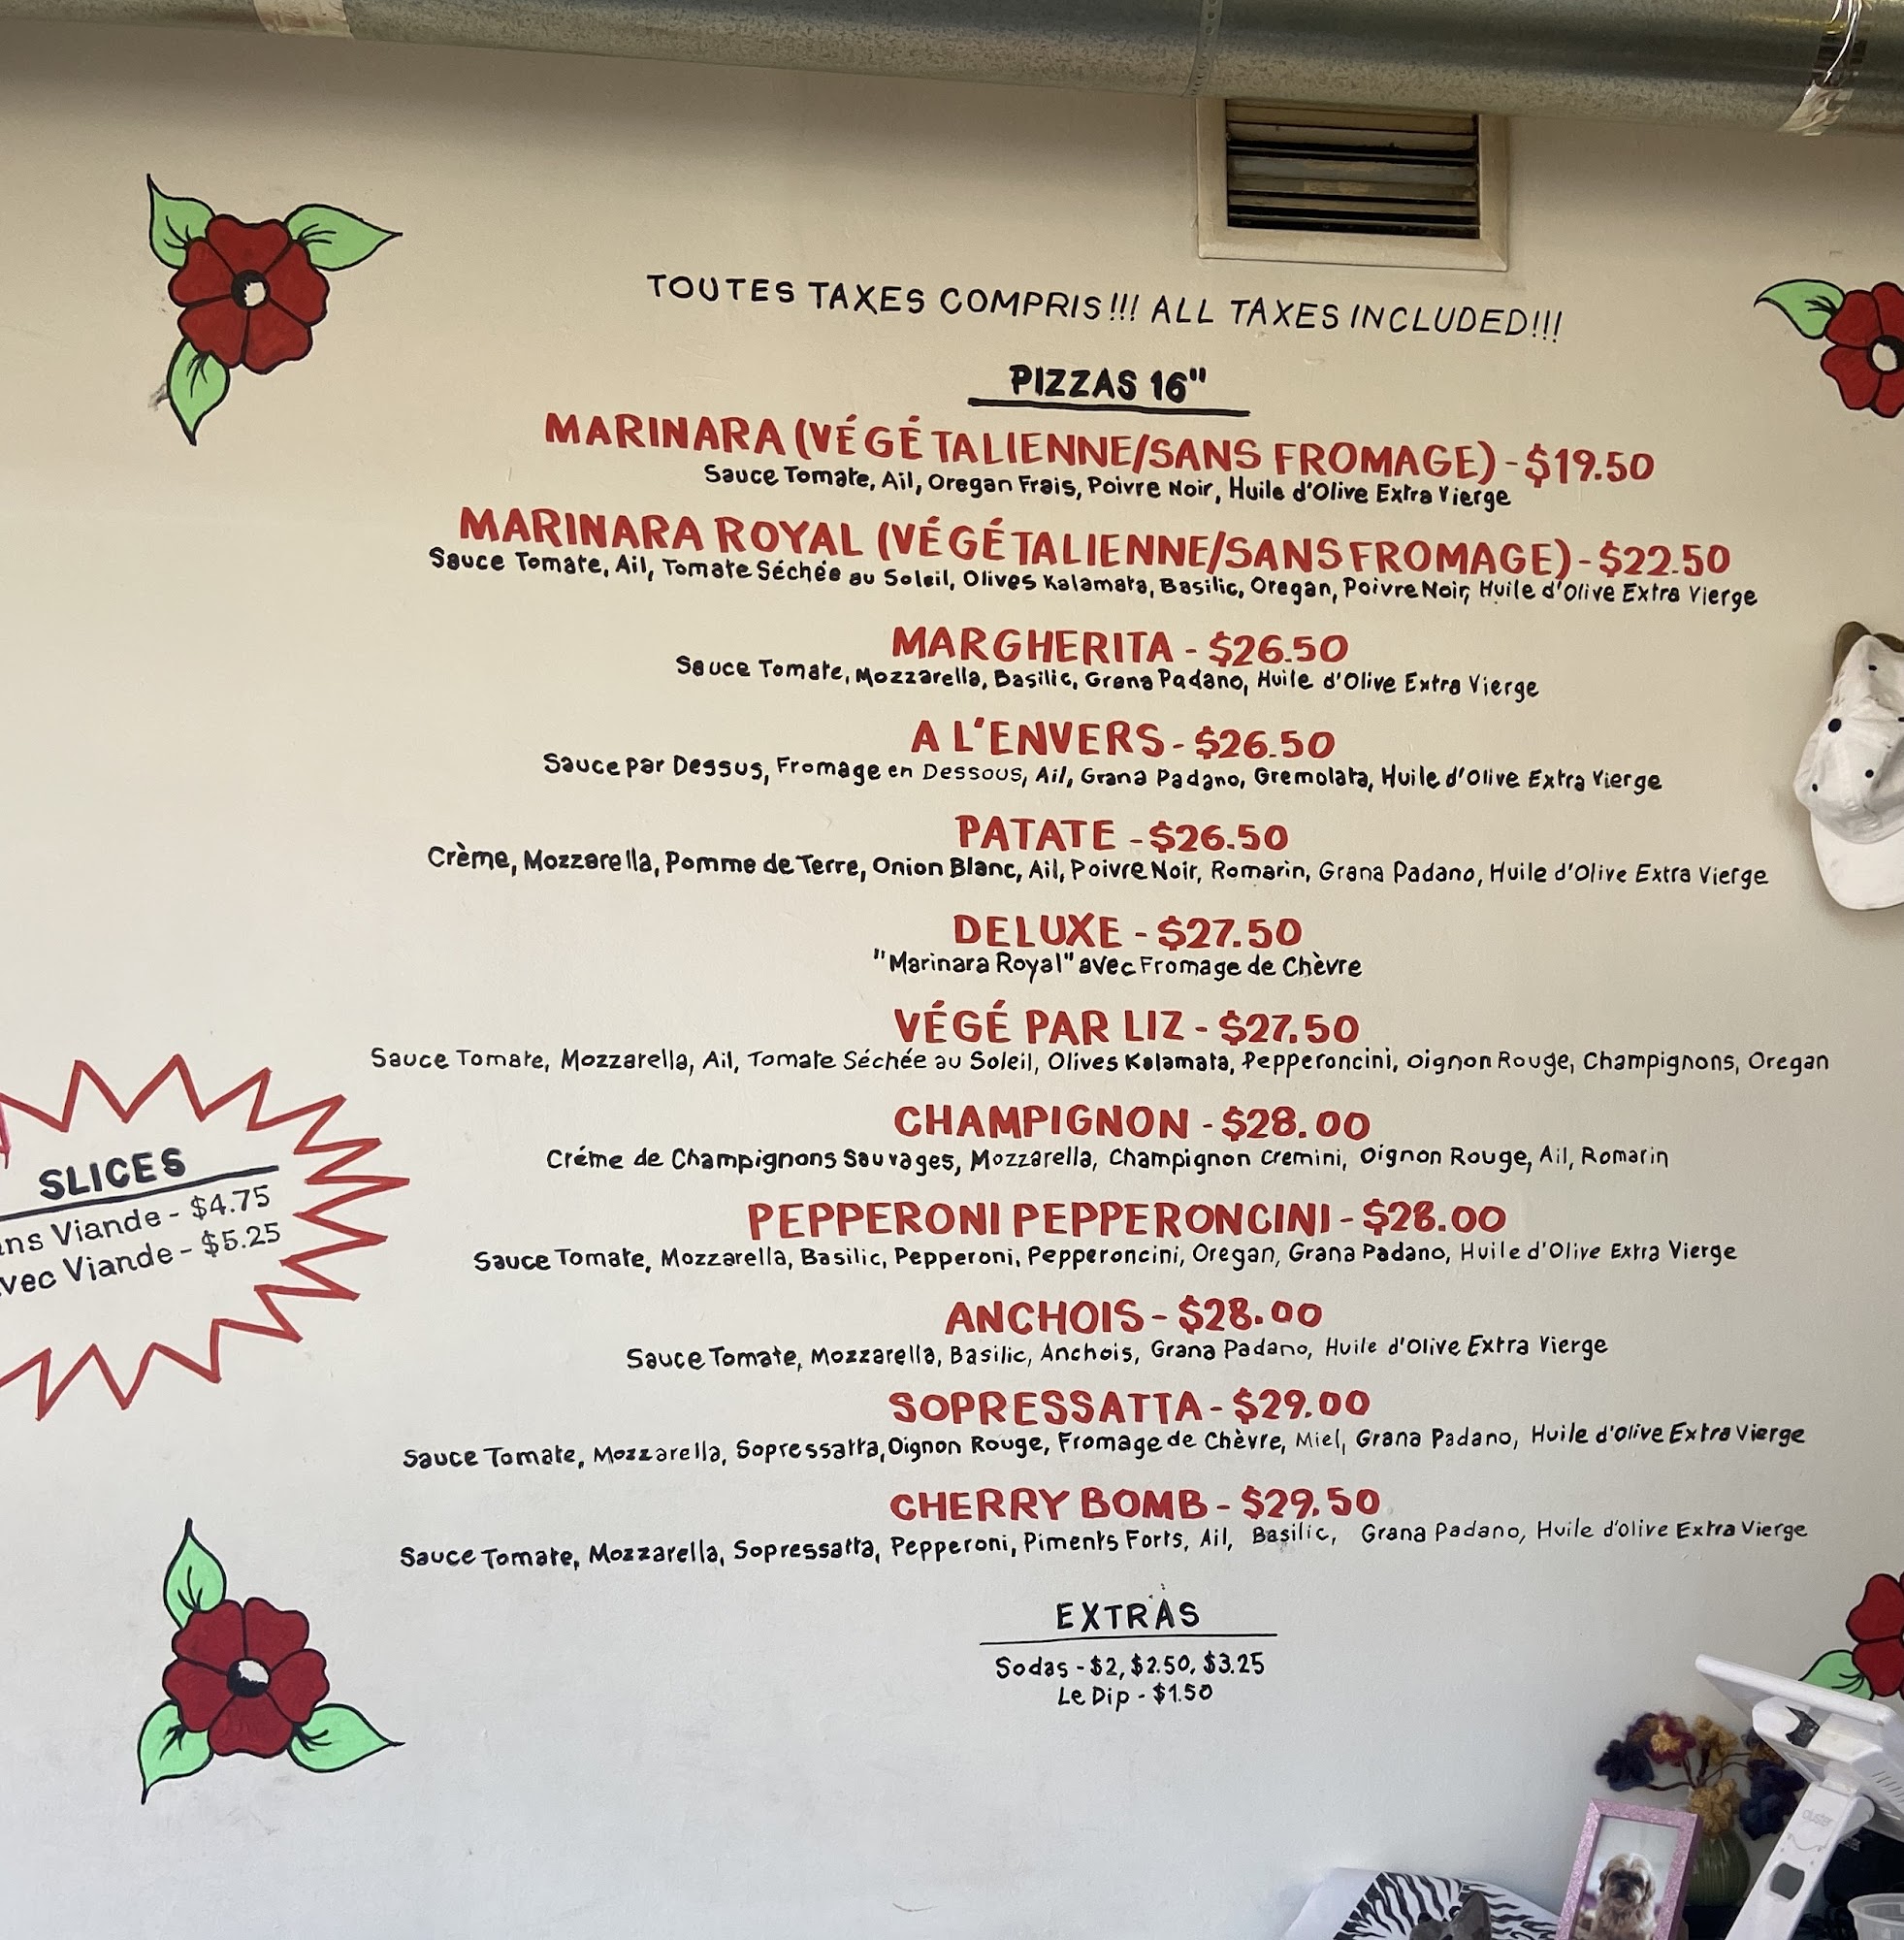 TOUTES TAXES COMPRIS!!! ALL TAXES INCLUDED!!!
PIZZAS 16"
MARINARA (VÉGÉTALIENNE/SANS FROMAGE) - $19.50
Sauce Tomate, Ail, Oregan Frais, Poivre Noir, Huile d'Olive Extra Vierge
MARINARA ROYAL (VÉGÉTALIENNE/SANS FROMAGE) - $22.50
Sauce Tomate, Ail, Tomate Séchée au Soleil, Olives Kalamata, Basilic, Oregan, Poivre Noir, Huile d'Olive Extra Vierge
MARGHERITA - $26.50
Sauce Tomate, Mozzarella, Basilic, Grana Padano, Huile d'Olive Extra Vierge
A L'ENVERS - $26.50
Sauce par Dessus, Fromage en Dessous, Ail, Grana Padano, Gremolata, Huile d'Olive Extra Vierge
PATATE - $26.50
Crème, Mozzarella, Pomme de Terre, Onion Blanc, Ail, Poivre Noir, Romarin, Grana Padano, Huile d'Olive Extra Vierge
DELUXE - $27.50
"Marinara Royal" avec Fromage de Chèvre
VÉGÉ PAR LIZ - $27.50
Sauce Tomate, Mozzarella, Ail, Tomate Séchée au Soleil, Olives Kalamata, Pepperoncini, Oignon Rouge, Champignons, Oregan
CHAMPIGNON - $28.00
Créme de Champignons Sauvages, Mozzarella, Champignon Cremini, Oignon Rouge, Ail, Romarin
PEPPERONI PEPPERONCINI - $28.00
Sauce Tomate, Mozzarella, Basilic, Pepperoni, Pepperoncini, Oregan, Grana Padano, Huile d'Olive Extra Vierge
ANCHOIS - $28.00
Sauce Tomate, Mozzarella, Basilic, Anchois, Grana Padano, Huile d'Olive Extra Vierge
SOPRESSATTA - $29.00
Sauce Tomate, Mozzarella, Sopressatta, Oignon Rouge, Fromage de Chèvre, Miel, Grana Padano, Huile d'Olive Extra Vierge
CHERRY BOMB - $29.50
Sauce Tomate, Mozzarella, Sopressatta, Pepperoni, Piments Forts, Ail, Basilic, Grana Padano, Huile d'Olive Extra Vierge
EXTRAS
Sodas - $2, $2.50, $3.25
Le Dip - $1.50
SLICES
ns Viande - $4.75
vec Viande - $5.25